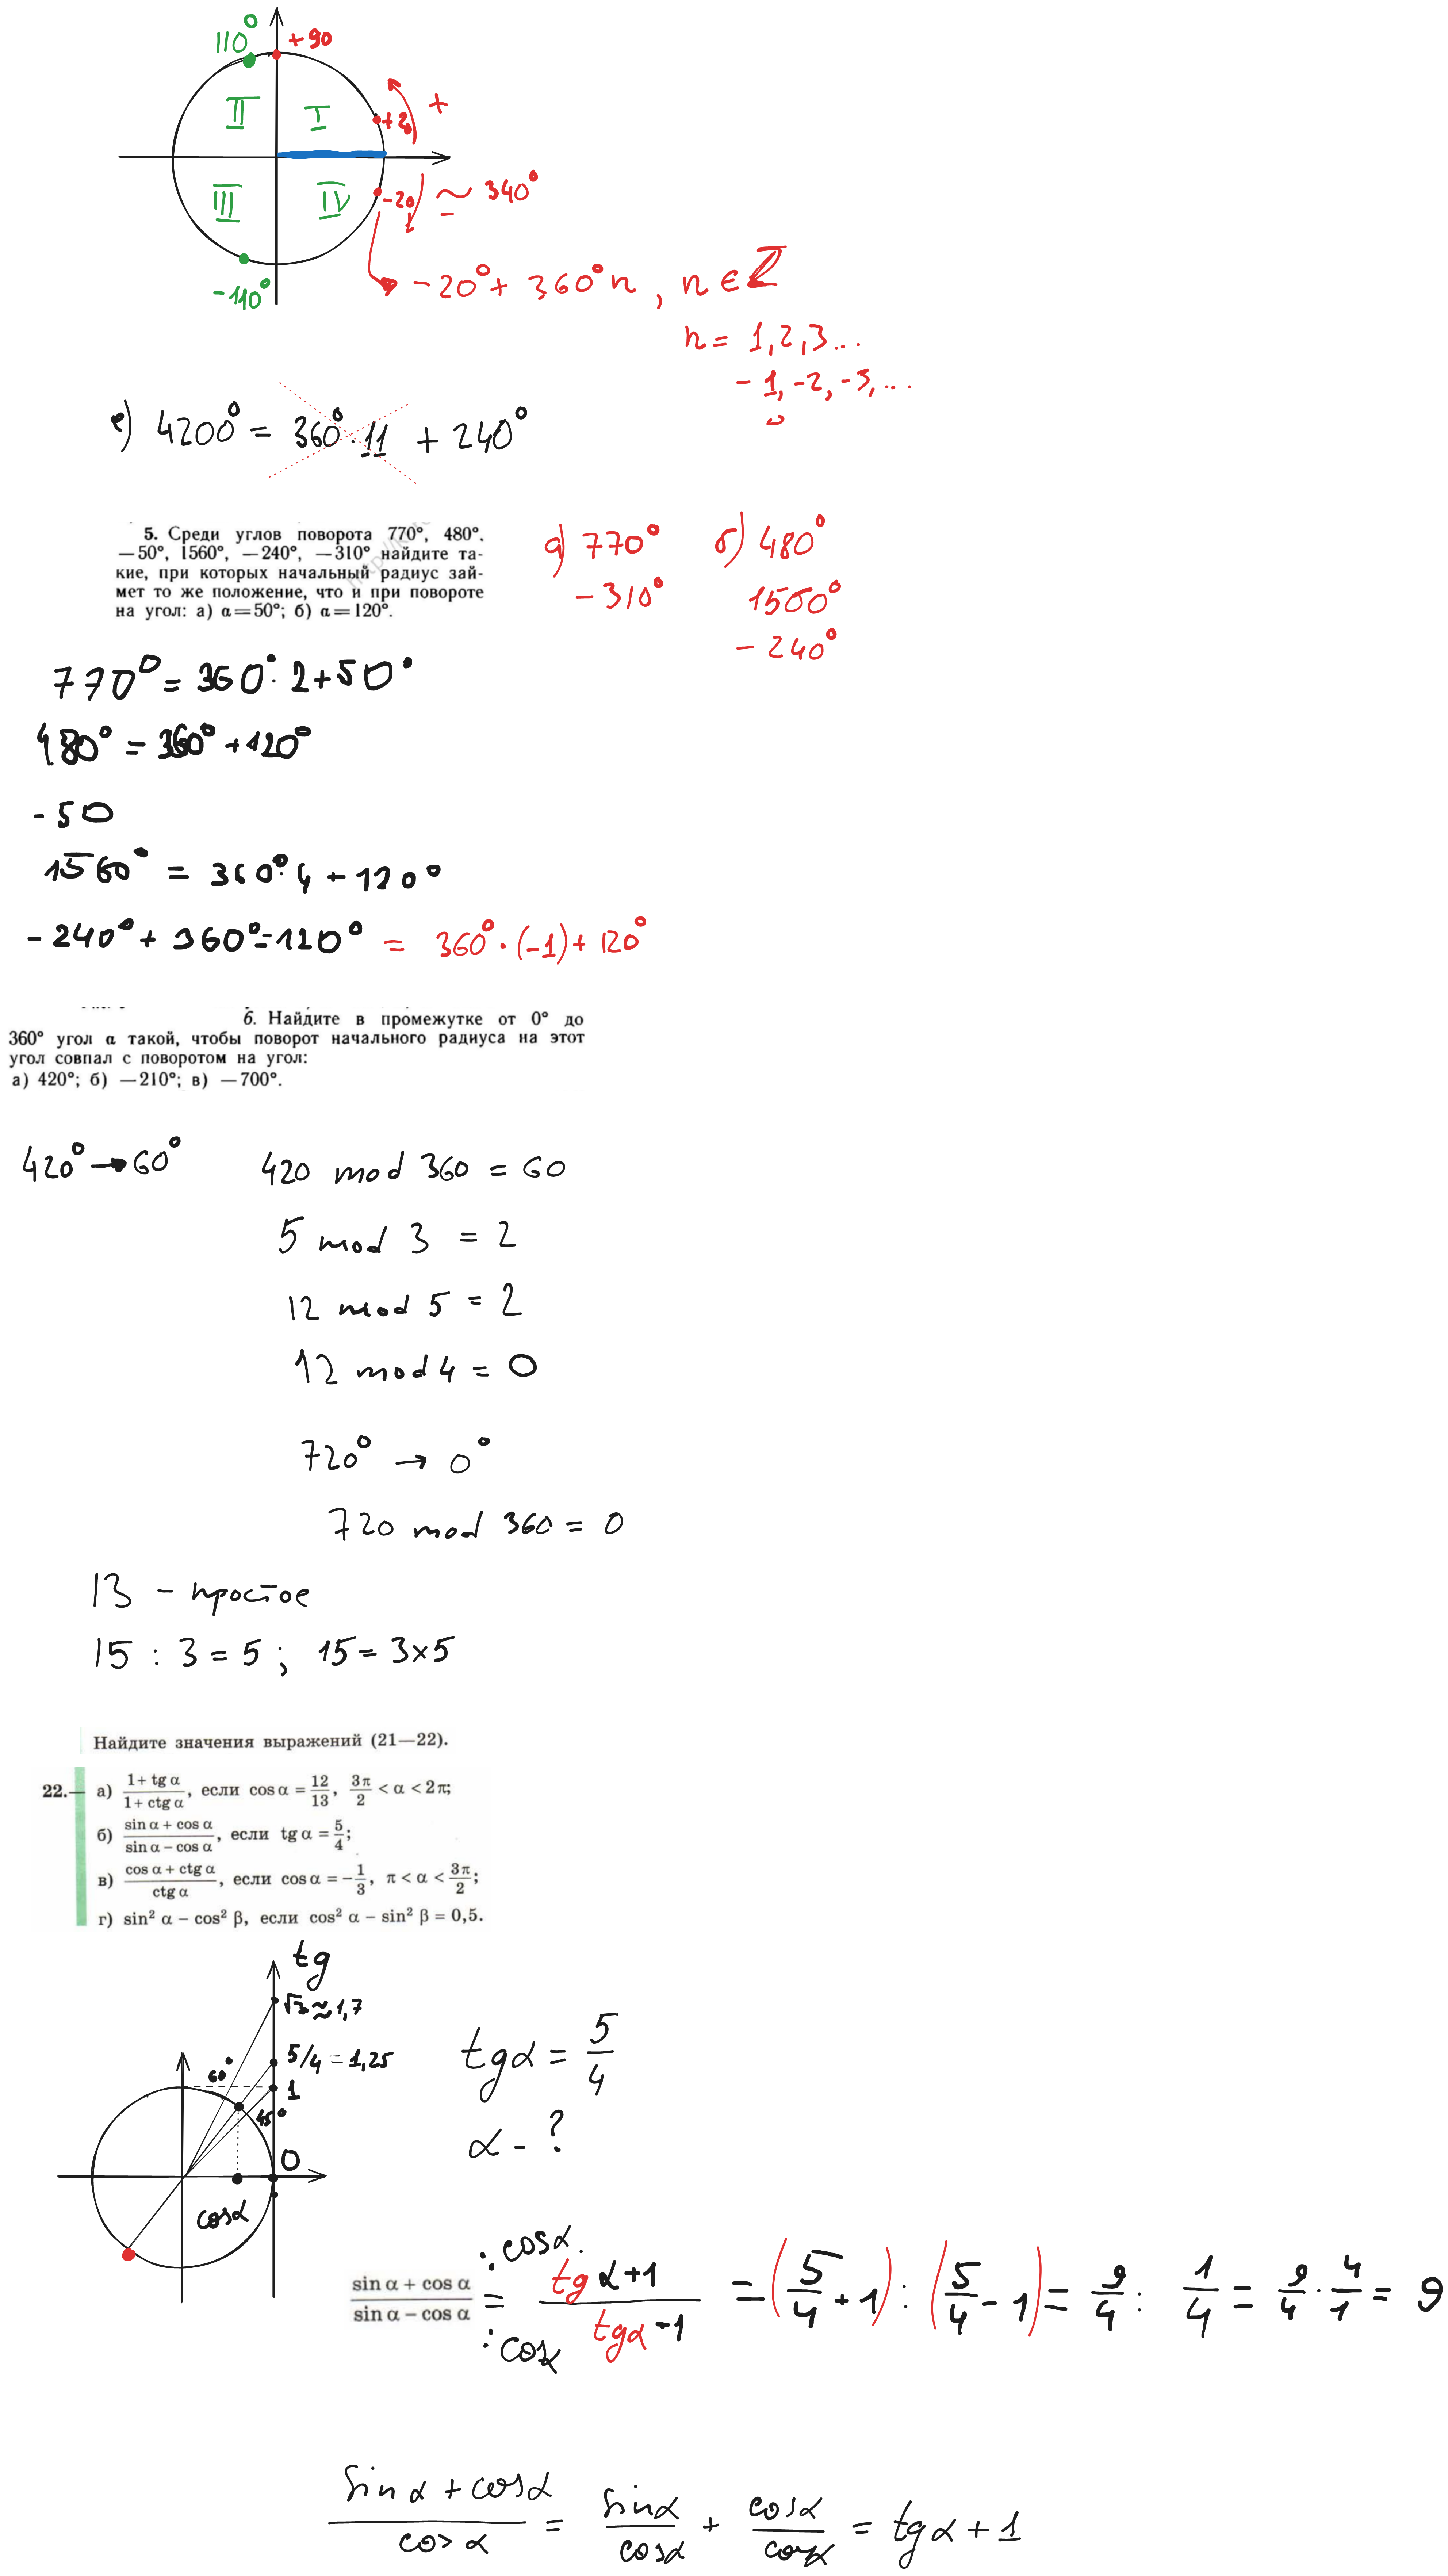 110° +90
II I +20 +
III IV -20 ~ 340°
-
-110° -20° + 360° n , n ∈ Z
n = 1, 2, 3...
- 1, -2, -3, ...
0
е) 4200° = 360° · 11 + 240°
5. Среди углов поворота 770°, 480°,
—50°, 1560°, —240°, —310° найдите та-
кие, при которых начальный радиус зай-
мет то же положение, что и при повороте
на угол: а) α=50°; б) α=120°.
а) 770° б) 480°
- 310° 1560°
- 240°
770° = 360° · 2 + 50°
480° = 360° + 120°
- 50
1560° = 360° · 4 + 120°
- 240° + 360° = 120° = 360° · (-1) + 120°
6. Найдите в промежутке от 0° до
360° угол α такой, чтобы поворот начального радиуса на этот
угол совпал с поворотом на угол:
а) 420°; б) —210°; в) —700°.
420° → 60° 420 mod 360 = 60
5 mod 3 = 2
12 mod 5 = 2
12 mod 4 = 0
720° → 0°
720 mod 360 = 0
13 - простое
15 : 3 = 5 ; 15 = 3×5
Найдите значения выражений (21—22).
22.— а) (1 + tg α)/(1 + ctg α), если cos α = 12/13, 3π/2 < α < 2π;
б) (sin α + cos α)/(sin α – cos α), если tg α = 5/4;
в) (cos α + ctg α)/(ctg α), если cos α = –1/3, π < α < 3π/2;
г) sin² α – cos² β, если cos² α – sin² β = 0,5.
tg
√3 ≈ 1,7
5/4 = 1,25
60°
1
45°
0
cos α
tg α = 5/4
α - ?
: cos α
(sin α + cos α)/(sin α – cos α) = (tg α + 1)/(tg α - 1) = (5/4 + 1) : (5/4 - 1) = 9/4 : 1/4 = 9/4 · 4/1 = 9
: cos α
(sin α + cos α)/(cos α) = sin α/cos α + cos α/cos α = tg α + 1